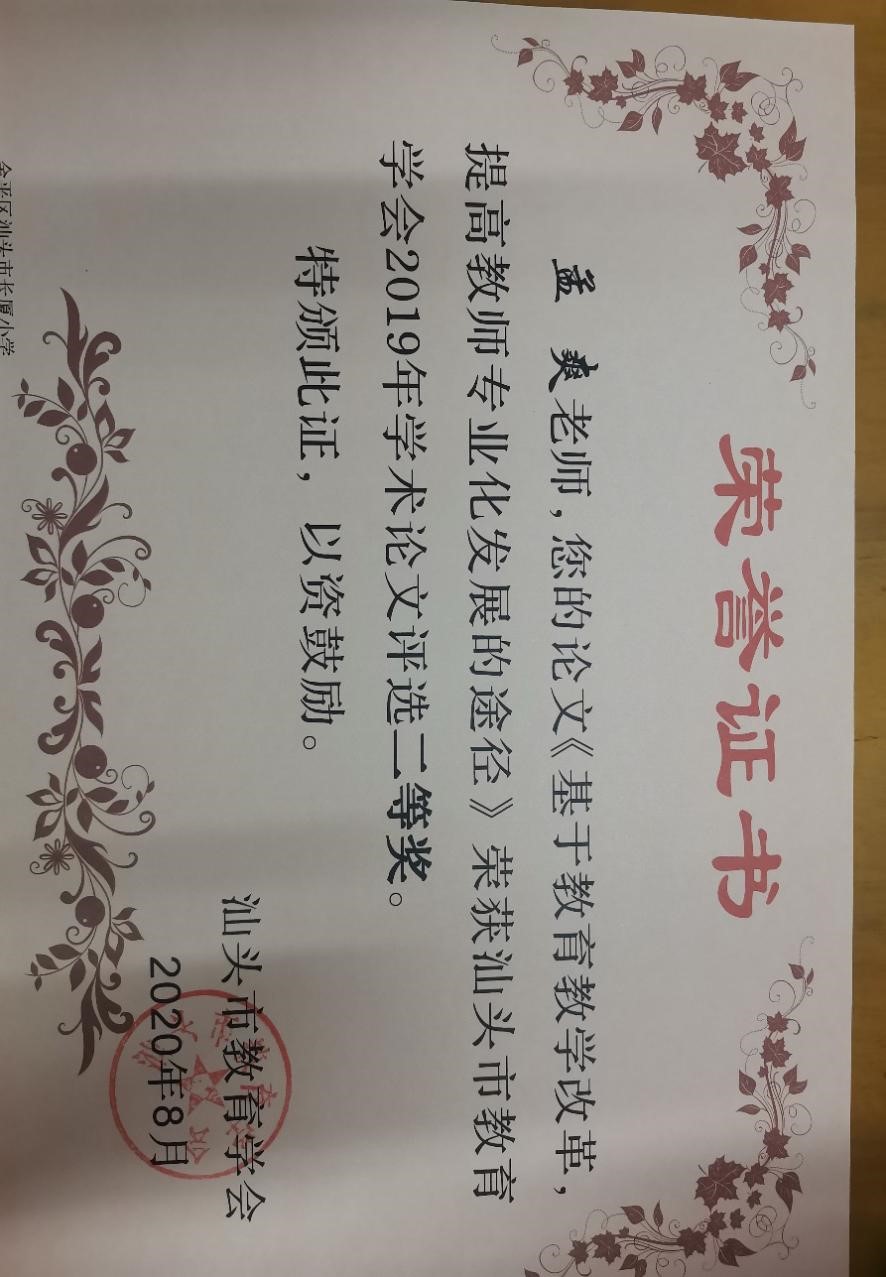 荣誉证书
孟 爽老师，您的论文《基于教育教学改革，
提高教师专业化发展的途径》荣获汕头市教育
学会2019年学术论文评选二等奖。
特颁此证，以资鼓励。
汕头市教育学会
2020年8月
金平区汕头市长厦小学